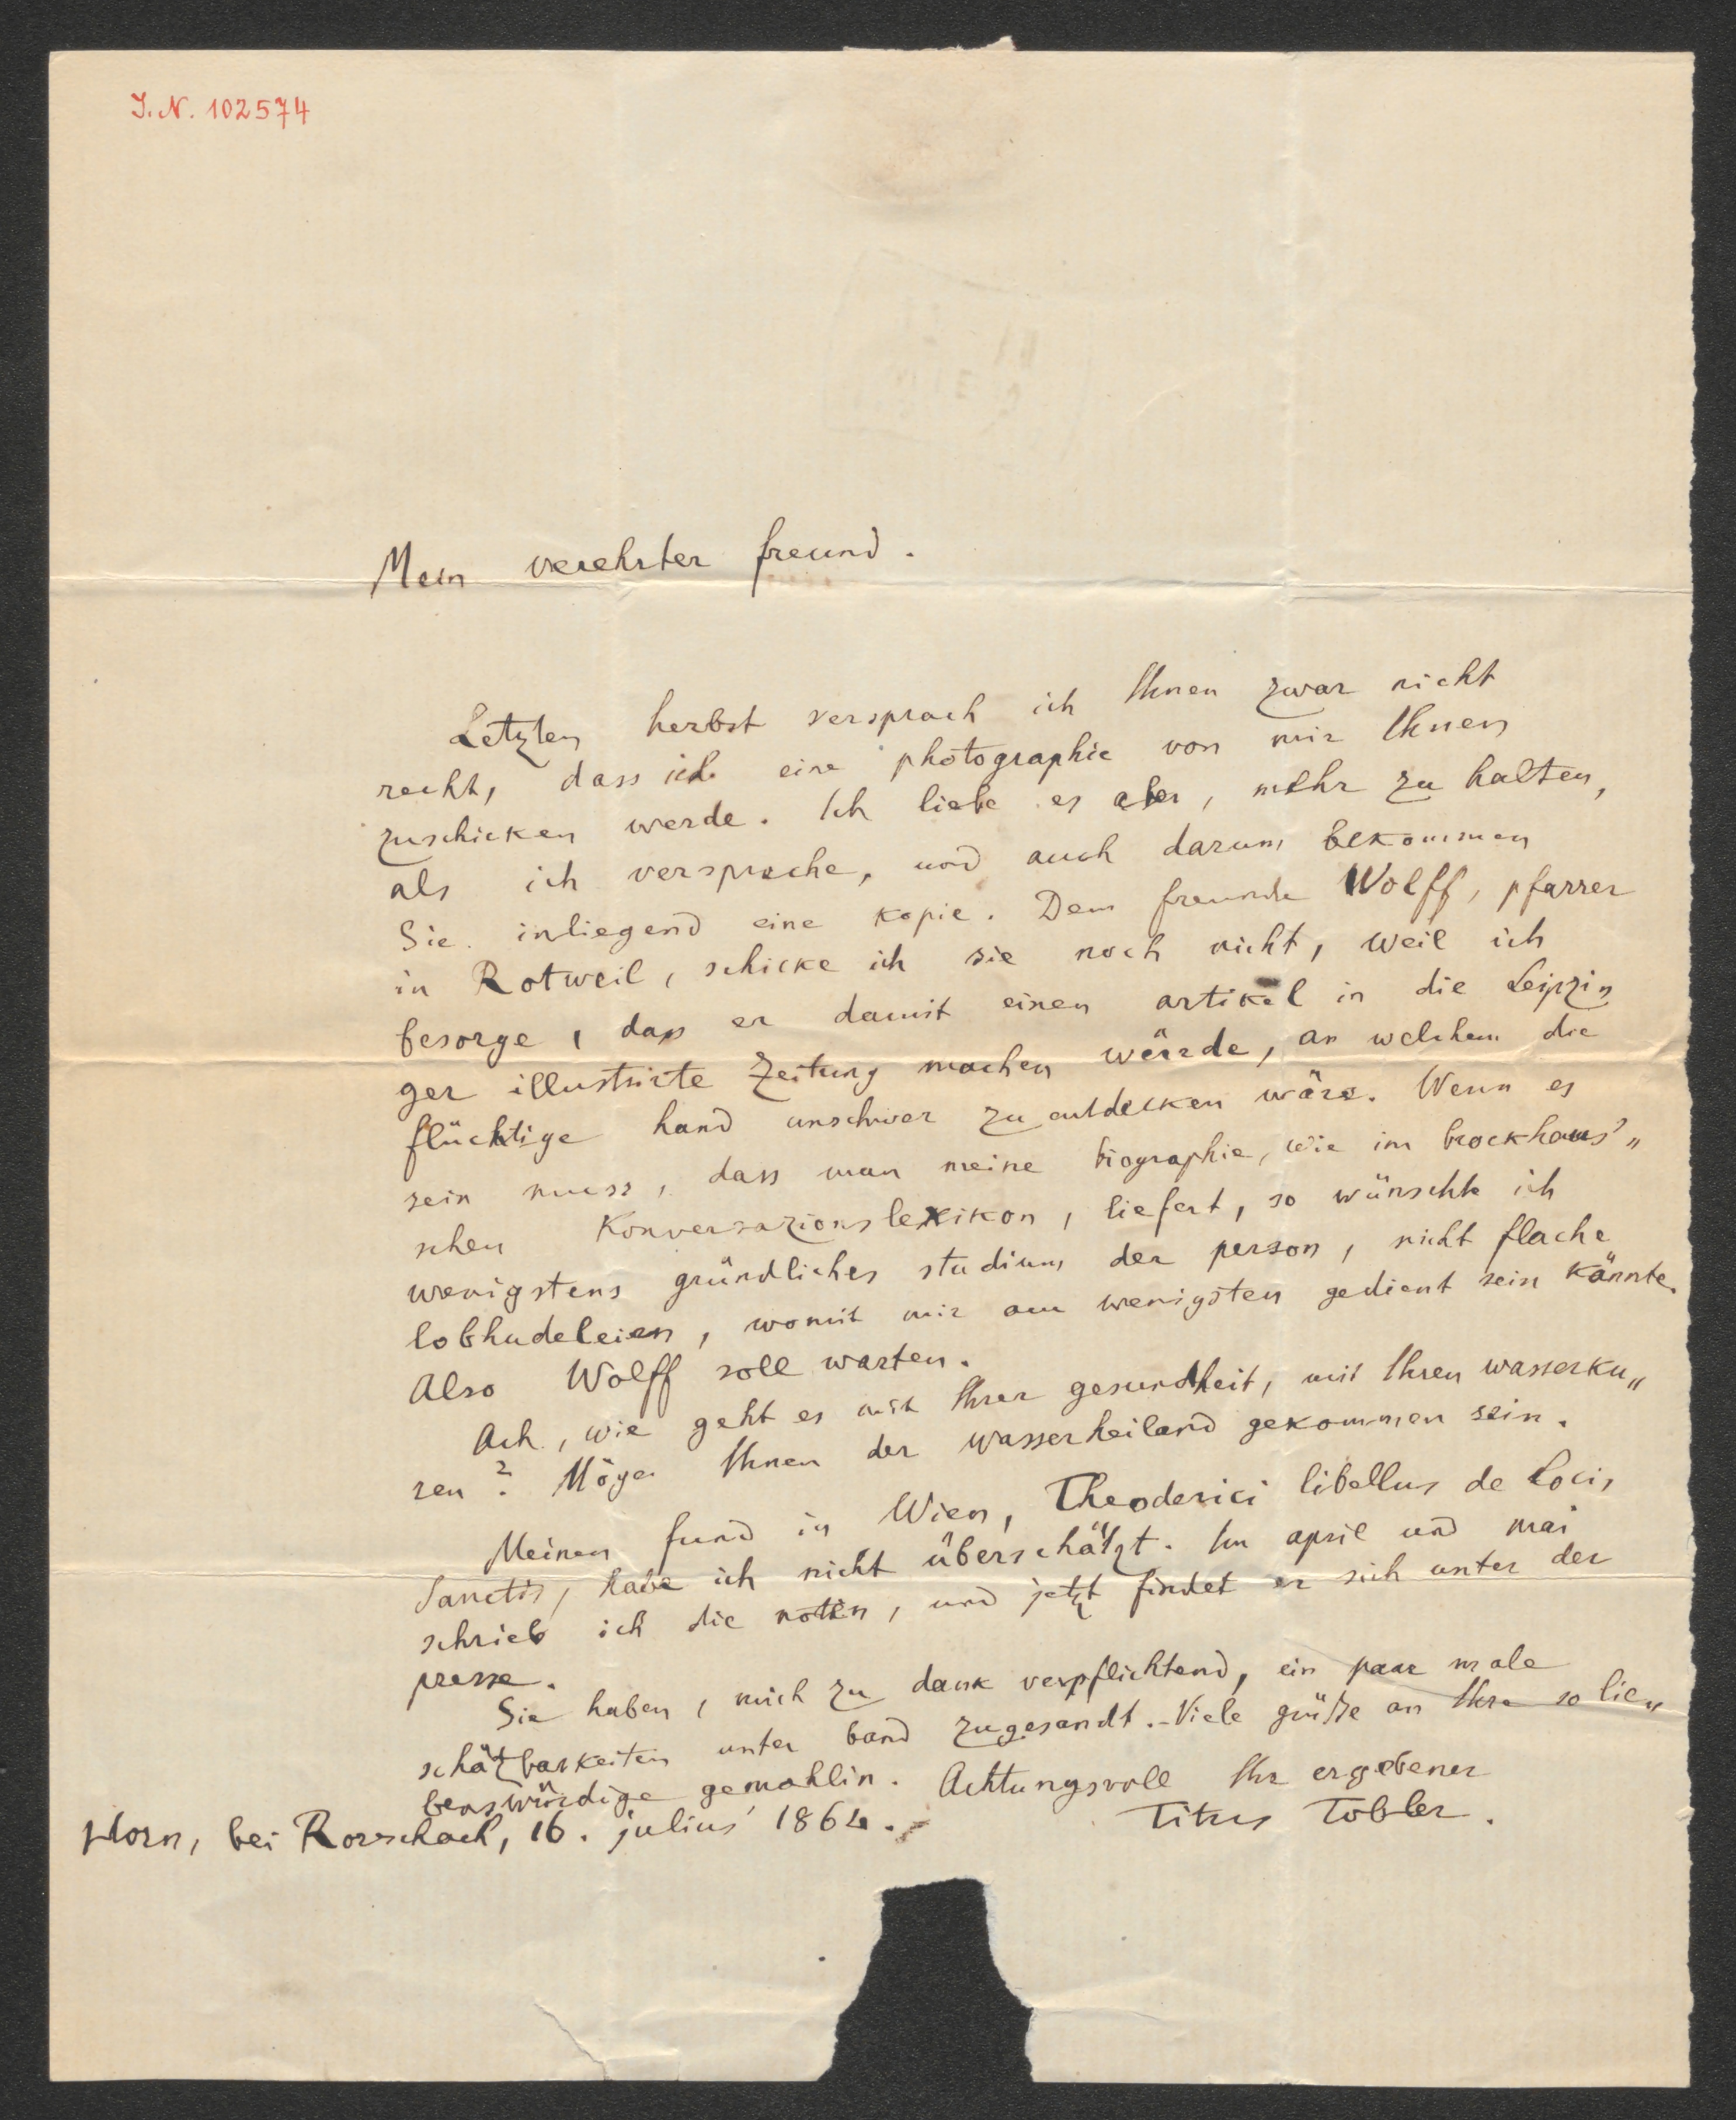 I. N. 102574
Mein verehrter freund.
Letzten herbst versprach ich Ihnen zwar nicht
recht, dass ich eine photographie von mir Ihnen
zuschicken werde. Ich liebe es aber, mehr zu halten,
als ich verspreche, und auch darum bekommen
Sie inliegend eine kopie. Dem freunde Wolff, pfarrer
in Rotweil, schicke ich sie noch nicht, weil ich
besorge, dass er damit einen artikel in die Leipzin
ger illustrirte Zeitung machen würde, an welchem die
flüchtige hand unschwer zu entdecken wäre. Wenn es
sein muss, dass man meine biographie, wie im brockhaus'„
schen Konversazionslexikon, liefert, so wünschte ich
wenigstens gründliches studium der person, nicht flache
lobhudeleien, womit mir am wenigsten gedient sein könnte.
Also Wolff soll warten.
Ach, wie geht es mit Ihrer gesundheit, mit Ihren wasserku„
ren? Möge Ihnen der wasserheiland gekommen sein.
Meinen fund in Wien, Theoderici libellus de Locis
Sanctis, habe ich nicht überschätzt. Im april und mai
schrieb ich die noten, und jetzt findet er sich unter der
presse.
Sie haben, mich zu dank verpflichtend, ein paar male
schätzbarkeiten unter band zugesandt. - Viele grüße an Ihre so lie„
benswürdige gemahlin. Achtungsvoll Ihr ergebener
Horn, bei Rorschach, 16. julius 1864. Titus Tobler.